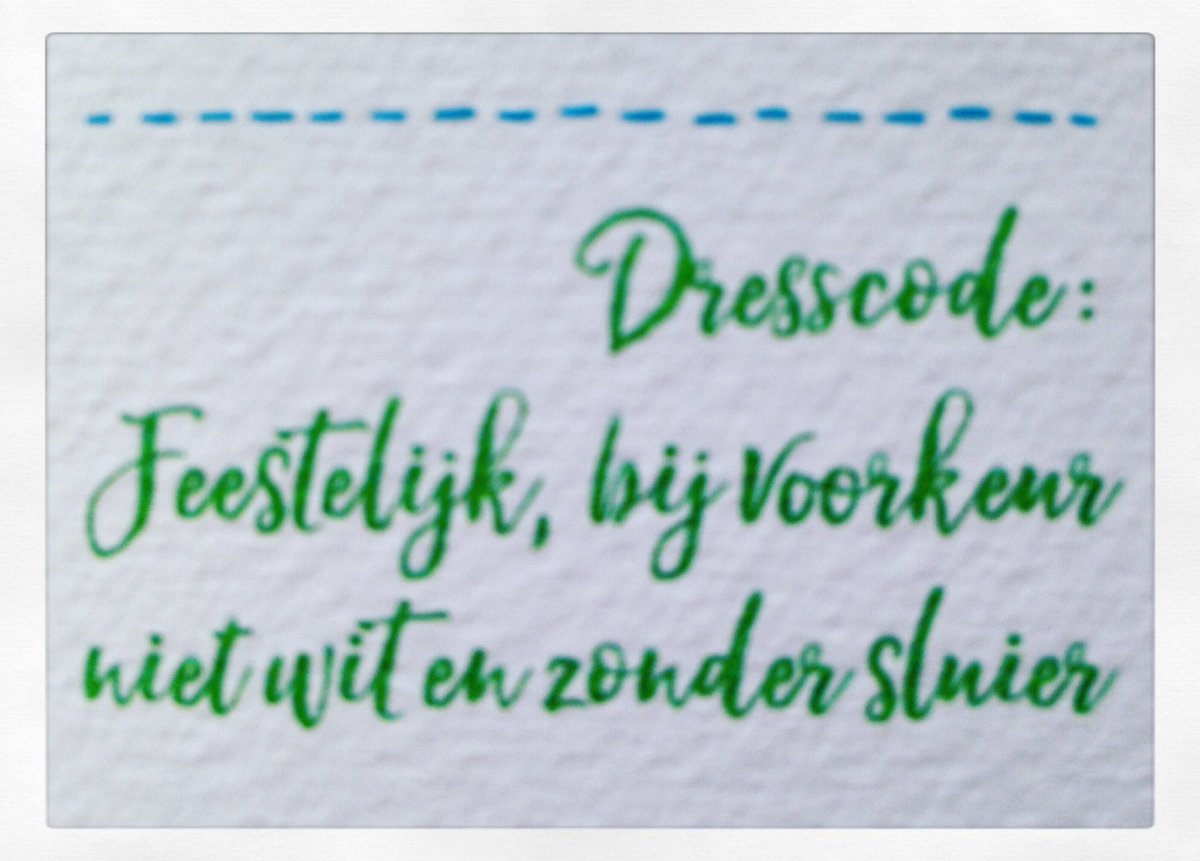 Dresscode:
Feestelijk, bij voorkeur
niet wit en zonder sluier